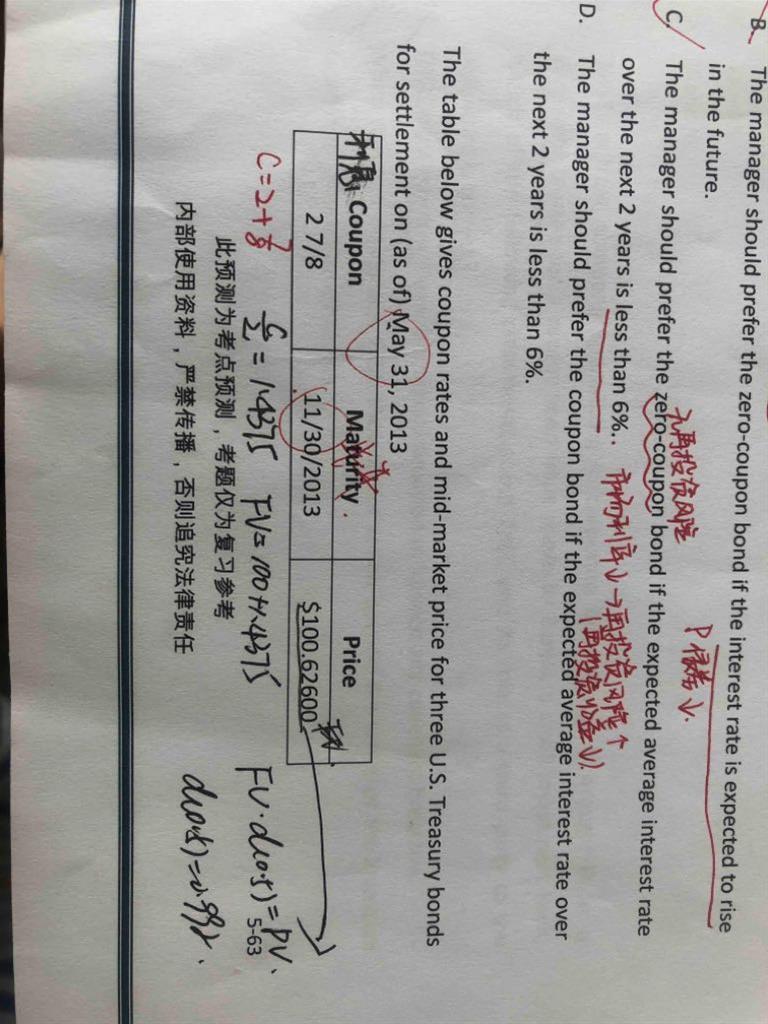 B. The manager should prefer the zero-coupon bond if the interest rate is expected to rise
in the future.
P 债券↓.
无再投资风险
C. The manager should prefer the zero-coupon bond if the expected average interest rate
over the next 2 years is less than 6%..
市场利率↓→再投资风险↑
(再投资收益↓)
D. The manager should prefer the coupon bond if the expected average interest rate over
the next 2 years is less than 6%.
The table below gives coupon rates and mid-market price for three U.S. Treasury bonds
for settlement on (as of) May 31, 2013
利息 Coupon Maturity Price
2 7/8 11/30/2013 $100.62600
C=2+7/8 C/2=1.4375 FV=100+1.4375 FV·d(0.5)=PV.
d(0.5)=0.992.
此预测为考点预测，考题仅为复习参考
内部使用资料，严禁传播，否则追究法律责任
5-63